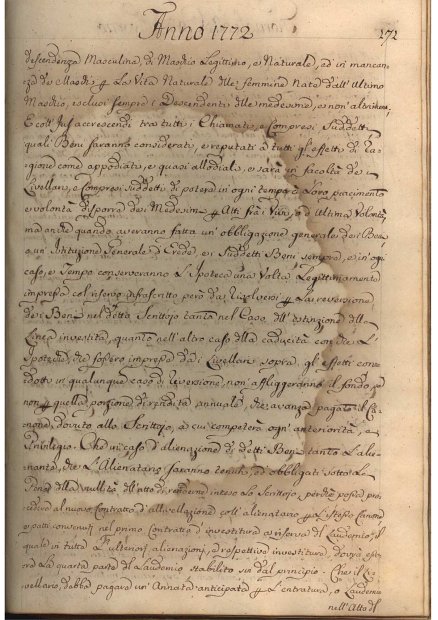 Anno 1772
272
descendenza Masculina, di Maschio Legittimo, e Naturale, ed in mancan-
za de Maschi p La Vita Naturale delle femmine Nate dall'Ultimo
Maschio, esclusi sempre i Descendenti delle medesime, e non altrimen.
E coll'Jus accrescendi tra tutti i Chiamati, e Compresi Suddetti
quali Beni saranno considerati, e reputati à tutti gl'effetti di Ra-
gione come appodiati, e quasi allodiali, e sarà in facoltà de i
Livellari, e Compresi Suddetti di potere in ogni tempo à Loro piacimento
e volontà disporre de i Medesimi p Atti frà i Vivi, e d'Ultima Volontà,
ma anche quando averanno fatta un'obbligazione generale de i Beni,
o un'Istituzione Generale d'Erede, e i Suddetti Beni sempre, e in ogni
caso, e Tempo conserveranno L'Ipoteca una Volta Legittimamente
impressa col riservo infrascritto però da risolversi p La reversione
de i Beni nel detto Scrittojo tanto nel Caso dell'estinzione della
Linea investita, quanto nell'altro caso della caducità con che L'
Ipoteche, che fossero impresse da i Livellari sopra gli effetti con-
dotti in qualunque caso di reversione, non affliggeranno il fondo, se
non p quella porzione di rendita annuale, che avanza pagato il Ca-
none, dovuto allo Scrittojo, a cui competerà ogni anteriorità, e
Privilegio. Che in caso d'alienazione di detti Beni tanto L'alie-
nante, che L'Alienatario saranno tenuti, ed obbligati sotto La
Pena della nullità dell'atto di renderne inteso Lo Scrittojo, perchè possa pro-
cedere al nuovo Contratto d'allivellazione coll'alienatario p L'istesso Canone
e patti convenuti nel primo Contratto d'investitura a riserva del Laudemio, il
quale in tutte L'ulteriori alienazioni, e respettive investiture, dovrà esse-
re La quarta parte di Laudemio stabilito sin dal principio. Che il Li-
vellario, debba pagare un'Annata anticipata p L'entratura, o Laudemio
nell'Atto del